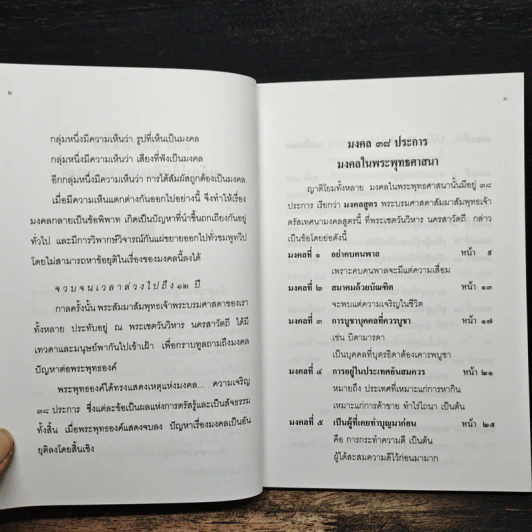 ๒
กลุ่มหนึ่งมีความเห็นว่า รูปที่เห็นเป็นมงคล
กลุ่มหนึ่งมีความเห็นว่า เสียงที่ฟังเป็นมงคล
อีกกลุ่มหนึ่งมีความเห็นว่า การได้สัมผัสถูกต้องเป็นมงคล
เมื่อมีความเห็นแตกต่างกันออกไปอย่างนี้ จึงทำให้เรื่อง
มงคลกลายเป็นข้อพิพาท เกิดเป็นปัญหาที่นำขึ้นถกเถียงกันอยู่
ทั่วไป และมีการวิพากษ์วิจารณ์กันแผ่ขยายออกไปทั่วชมพูทวีป
โดยไม่สามารถหาข้อยุติในเรื่องของมงคลนี้ลงได้
จวบจนเวลาล่วงไปถึง ๑๒ ปี
กาลครั้งนั้น พระสัมมาสัมพุทธเจ้าพระบรมศาสดาของเรา
ทั้งหลาย ประทับอยู่ ณ พระเชตวันวิหาร นครสาวัตถี ได้มี
เทวดาและมนุษย์พากันไปเข้าเฝ้า เพื่อกราบทูลถามถึงมงคล
ปัญหาต่อพระพุทธองค์
พระพุทธองค์ได้ทรงแสดงเหตุแห่งมงคล... ความเจริญ
๓๘ ประการ ซึ่งแต่ละข้อเป็นผลแห่งการตรัสรู้และเป็นสัจธรรม
ทั้งสิ้น เมื่อพระพุทธองค์แสดงจบลง ปัญหาเรื่องมงคลเป็นอัน
ยุติลงโดยสิ้นเชิง
๑
มงคล ๓๘ ประการ
มงคลในพระพุทธศาสนา
ญาติโยมทั้งหลาย มงคลในพระพุทธศาสนานั้นมีอยู่ ๓๘
ประการ เรียกว่า มงคลสูตร พระบรมศาสดาสัมมาสัมพุทธเจ้า
ตรัสเทศนามงคลสูตรนี้ ที่พระเชตวันวิหาร นครสาวัตถี กล่าว
เป็นข้อโดยย่อดังนี้
มงคลที่ ๑ อย่าคบคนพาล หน้า ๕
เพราะคบคนพาลจะมีแต่ความเสื่อม
มงคลที่ ๒ สมาคมด้วยบัณฑิต หน้า ๑๓
จะพบแต่ความเจริญในชีวิต
มงคลที่ ๓ การบูชาบุคคลที่ควรบูชา หน้า ๑๗
เช่น บิดามารดา
เป็นบุคคลที่บุตรธิดาต้องเคารพบูชา
มงคลที่ ๔ การอยู่ในประเทศอันสมควร หน้า ๒๑
หมายถึง ประเทศที่เหมาะแก่การหากิน
เหมาะแก่การค้าขาย ทำไร่ไถนา เป็นต้น
มงคลที่ ๕ เป็นผู้ที่เคยทำบุญมาก่อน หน้า ๒๕
คือ การกระทำความดี เป็นต้น
ผู้ได้สะสมความดีไว้ก่อนมามาก